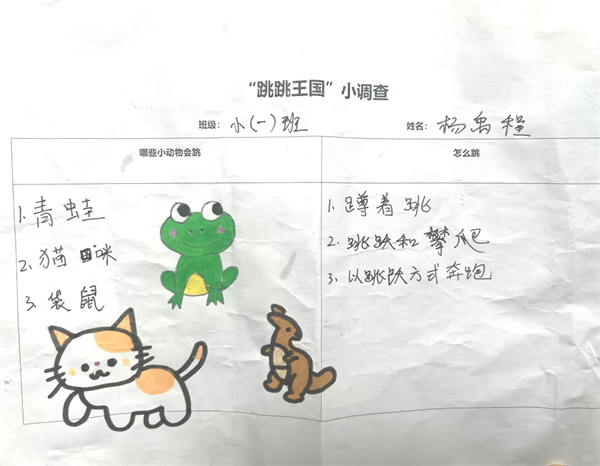 “跳跳王国”小调查
班级：小(一)班 姓名：杨禹程
哪些小动物会跳 怎么跳
1. 青蛙 1. 蹲着跳
2. 猫咪 2. 跳跃和攀爬
3. 袋鼠 3. 以跳跃方式奔跑